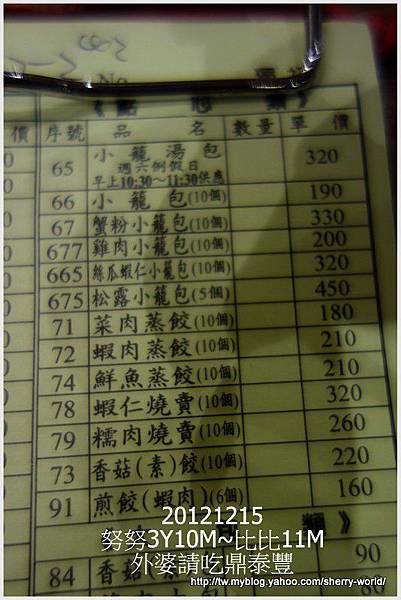 《點心類》
價 序號 品名 數量 單價
65 小籠湯包 320
週六例假日
早上10:30～11:30供應
66 小籠包(10個) 190
67 蟹粉小籠包(10個) 330
677 雞肉小籠包(10個) 200
665 絲瓜蝦仁小籠包(10個) 320
675 松露小籠包(5個) 450
71 菜肉蒸餃(10個) 180
72 蝦肉蒸餃(10個) 210
74 鮮魚蒸餃(10個) 210
78 蝦仁燒賣(10個) 320
79 糯肉燒賣(10個) 260
73 香菇(素)餃(10個) 220
91 煎餃(蝦肉)(6個) 160
類》
84 香菇 90
80
20121215
努努3Y10M~比比11M
外婆請吃鼎泰豐
http://tw.myblog.yahoo.com/sherry-world/